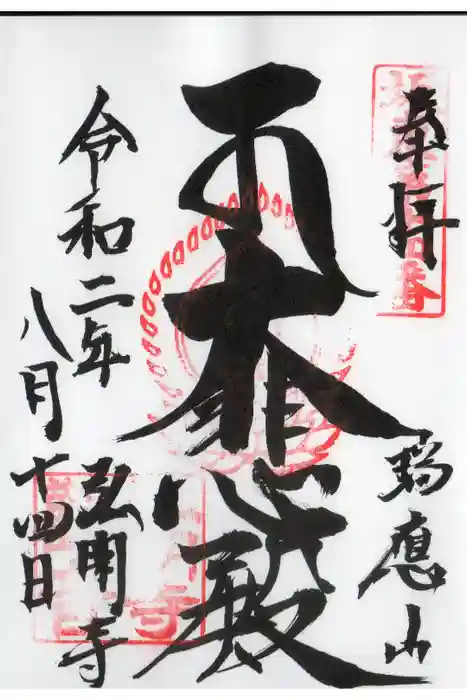 奉拝
瑞應山
大悲殿
弘明寺
令和二年
八月十四日